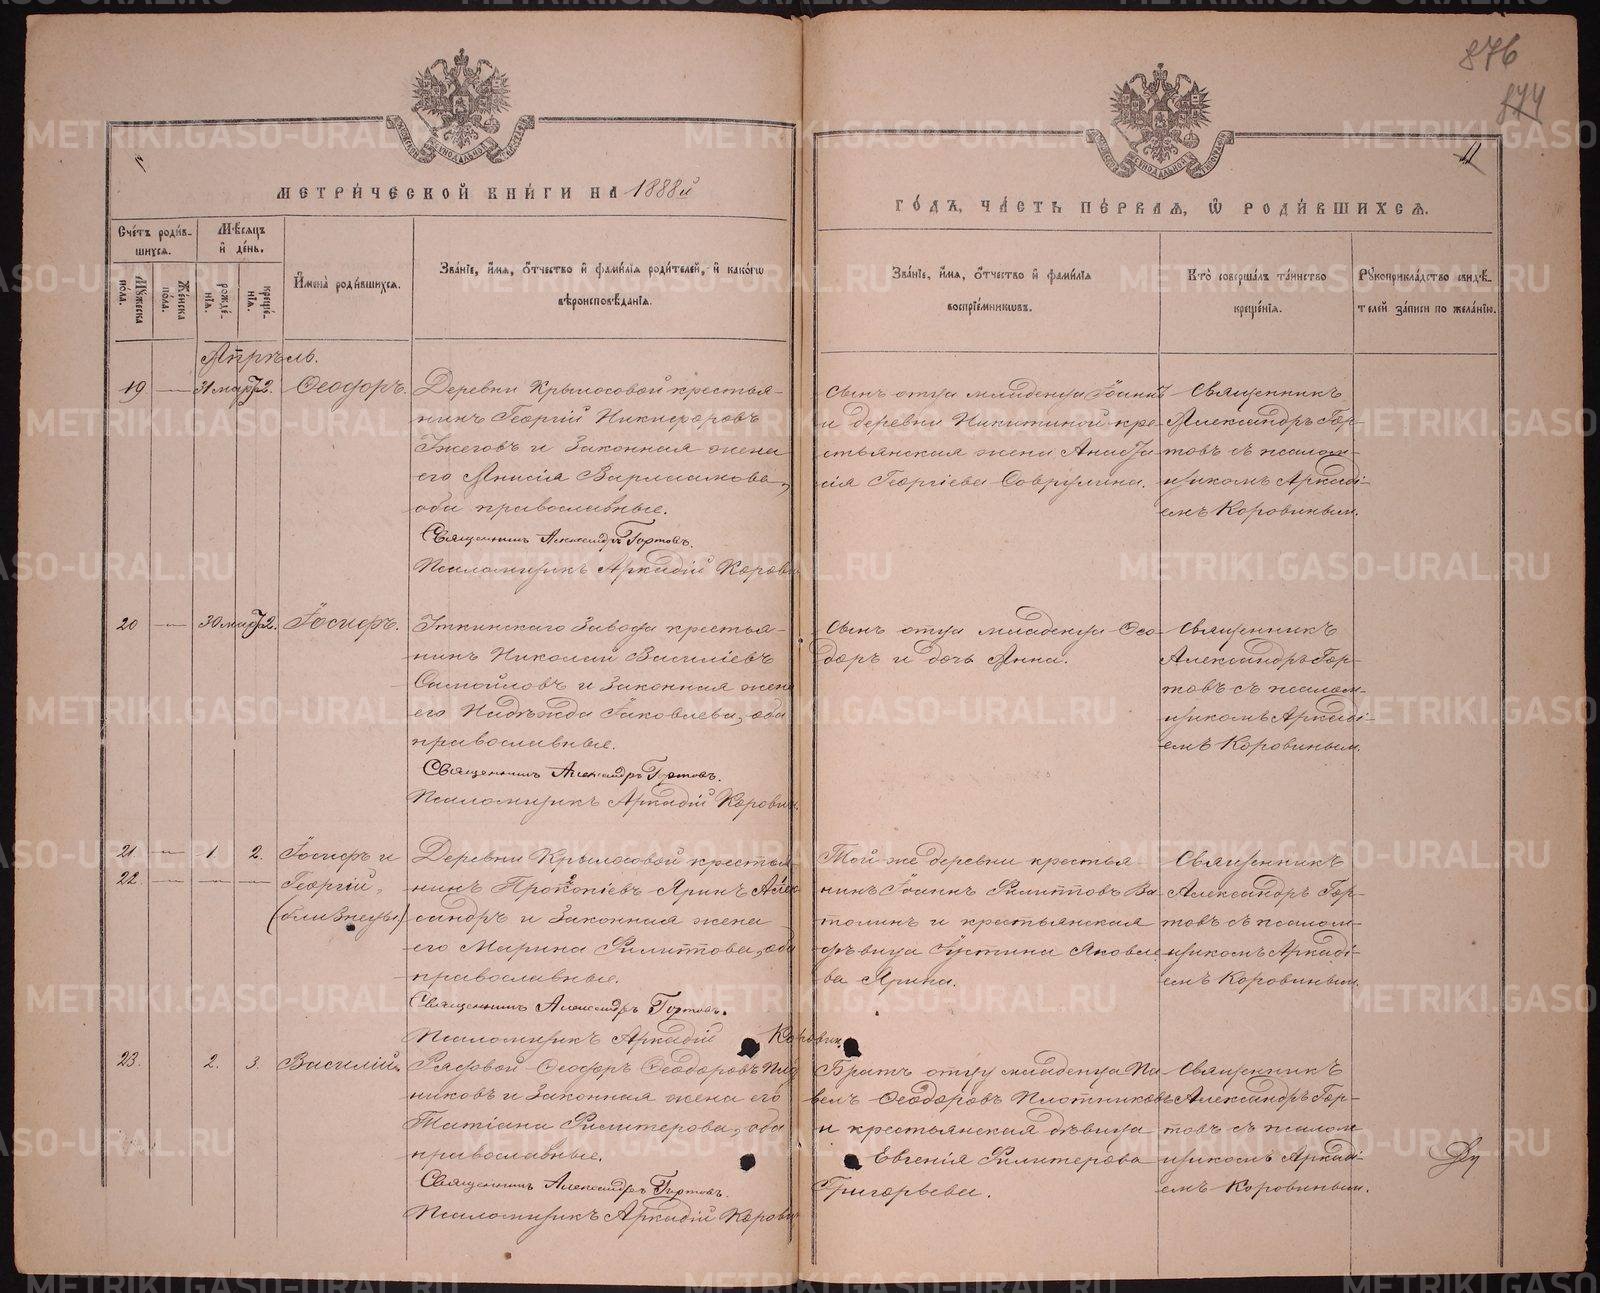 876
874
11
МЕТРИ́ЧЕСКОЙ КНИ́ГИ НА 1888й
ГО́ДЪ, ЧА́СТЬ ПЕ́РВАЯ, Ѡ РОДИ́ВШИХСЯ.
Сче́тъ роди́в-
шихся.
Мꙋ́жеска по́ла.
Же́нска по́ла.
Мѣ́сяцъ и҆ де́нь.
рожде́-нїя.
креще́-нїя.
И҆мена̀ роди́вшихся.
Зва́нїе, и҆́мя, ѻ҆́тчество и҆ фами́лїя роди́телей, и҆ како́гѡ
вѣроисповѣ́данїя.
Зва́нїе, и҆́мя, ѻ҆́тчество и҆ фами́лїя
воспрїе́мникѡвъ.
Кто̀ соверша́лъ та́инство
креще́нїя.
Рꙋкоприкла́дство свидѣ́-
телей за́писи по жела́нїю.
Апрѣль.
19 — 31 марта 2. Ѳеодоръ.
Деревни Крылосовой крестья-
нинъ Георгій Никифоровъ
Ижеговъ и законная жена
его Анисія Варлаамова,
оба православные.
Священникъ Александръ Гортовъ.
Псаломщикъ Аркадій Коровин
Сынъ отца младенца Іоаннъ
и деревни Никитиной кре-
стьянская жена Анаста-
сія Георгіева Совру­лина.
Священникъ
Александръ Гор-
товъ съ псалом-
щикомъ Аркаді-
емъ Коровинымъ.
20 — 30 марта 2. Іосифъ.
Уткинскаго завода крестья-
нинъ Николай Василіевъ
Самойловъ и законная жена
его Надѣжда Іаковлева, оба
православные.
Священникъ Александръ Гортовъ.
Псаломщикъ Аркадій Коровин.
Сынъ отца младенца Ѳео-
доръ и дочь Анна.
Священникъ
Александръ Гор-
товъ съ псалом-
щикомъ Аркаді-
емъ Коровинымъ.
21. — 1 2. Іосифъ и
22. — — — Георгій,
(близнецы)
Деревни Крылосовой крестья
нинъ Прокопіевъ Яринъ Алек-
сандръ и законная жена
его Марина Филиппова, оба
православные.
Священникъ Александръ Гортовъ.
Псаломщикъ Аркадій Коровин.
Той же деревни крестья
нинъ Іоаннъ Филипповъ Ва-
толинъ и крестьянская
дѣвица Іустина Яковле
ва Ярина.
Священникъ
Александръ Гор-
товъ съ псалом-
щикомъ Аркаді-
емъ Коровинымъ.
23. 2. 3. Василій.
Рядовой Ѳеодоръ Ѳеодоровъ Пло
никовъ и законная жена его
Татіана Филитерова, оба
православные.
Священникъ Александръ Гортовъ.
Псаломщикъ Аркадій Коровин
Братъ отцу младенца Па-
велъ Ѳеодоровъ Плотниковъ
и крестьянская дѣвица
Евгенія Филитерова
Григорьева.
Священникъ
Александръ Гор-
товъ съ псалом
щикомъ Аркаді-
емъ Коровинымъ.
METRIKI.GASO-URAL.RU